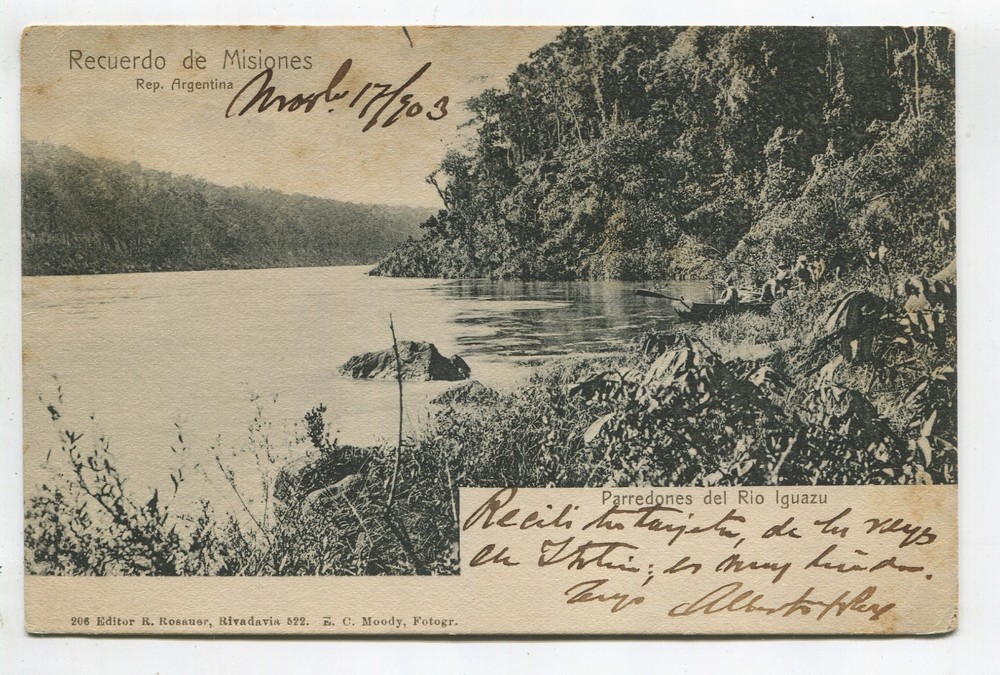 Recuerdo de Misiones
Rep. Argentina
17/903
Parredones del Rio Iguazu
Recibi tu tarjeta, de los reyes
de Italia; es muy linda.
Tuyo Alberto
206 Editor R. Rosauer, Rivadavia 522. E. C. Moody, Fotogr.